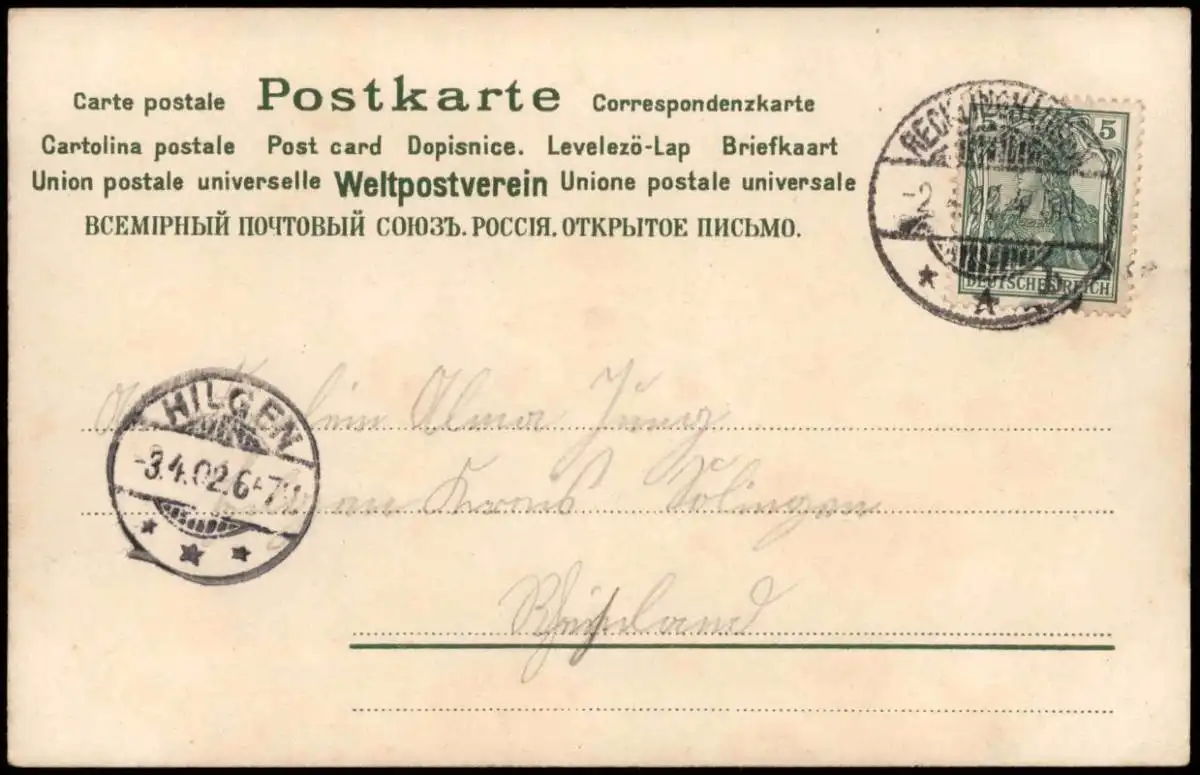 Carte postale Postkarte Correspondenzkarte
Cartolina postale Post card Dopisnice. Levelezö-Lap Briefkaart
Union postale universelle Weltpostverein Unione postale universale
ВСЕМІРНЫЙ ПОЧТОВЫЙ СОЮЗЪ. РОССІЯ. ОТКРЫТОЕ ПИСЬМО.
5
DEUTSCHES REICH
HILGEN
-3.4.02.6-7N
Alma Jung
Kreis Solingen
Rheinland